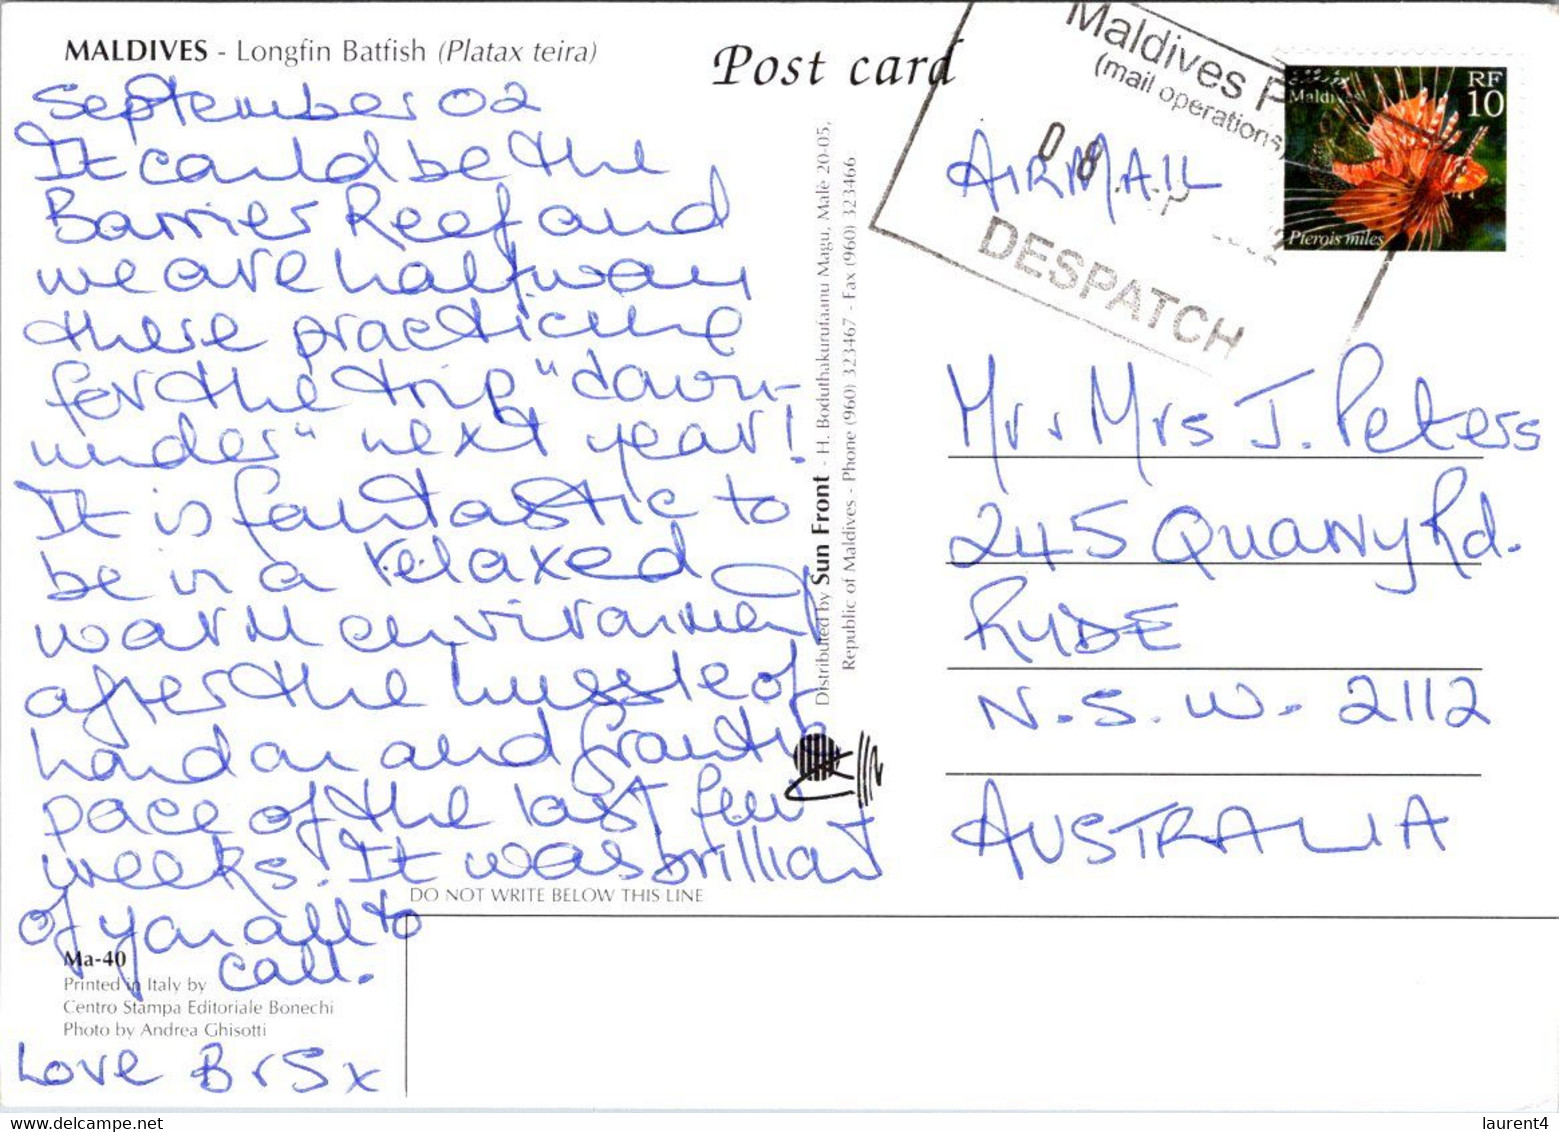 MALDIVES - Longfin Batfish (Platax teira)
September 02
It could be the
Barrier Reef and
we are halfway
there practicing
for the trip "down-
under" next year!
It is fantastic to
be in a relaxed
warm environment
after the hussle of
London and frantic
pace of the last few
weeks! It was brilliant
of you all to
call.
Love B & S x
Ma-40
Printed in Italy by
Centro Stampa Editoriale Bonechi
Photo by Andrea Ghisotti
DO NOT WRITE BELOW THIS LINE
Distributed by Sun Front - H. Boduthakurufaanu Magu, Malè 20-05,
Republic of Maldives - Phone (960) 323467 - Fax (960) 323466
Post card
Maldives P
(mail operations)
08
DESPATCH
AIRMAIL
Maldives
RF
10
Pterois miles
Mr & Mrs J. Peters
245 Quarry Rd.
RYDE
N.S.W. 2112
AUSTRALIA
laurent4